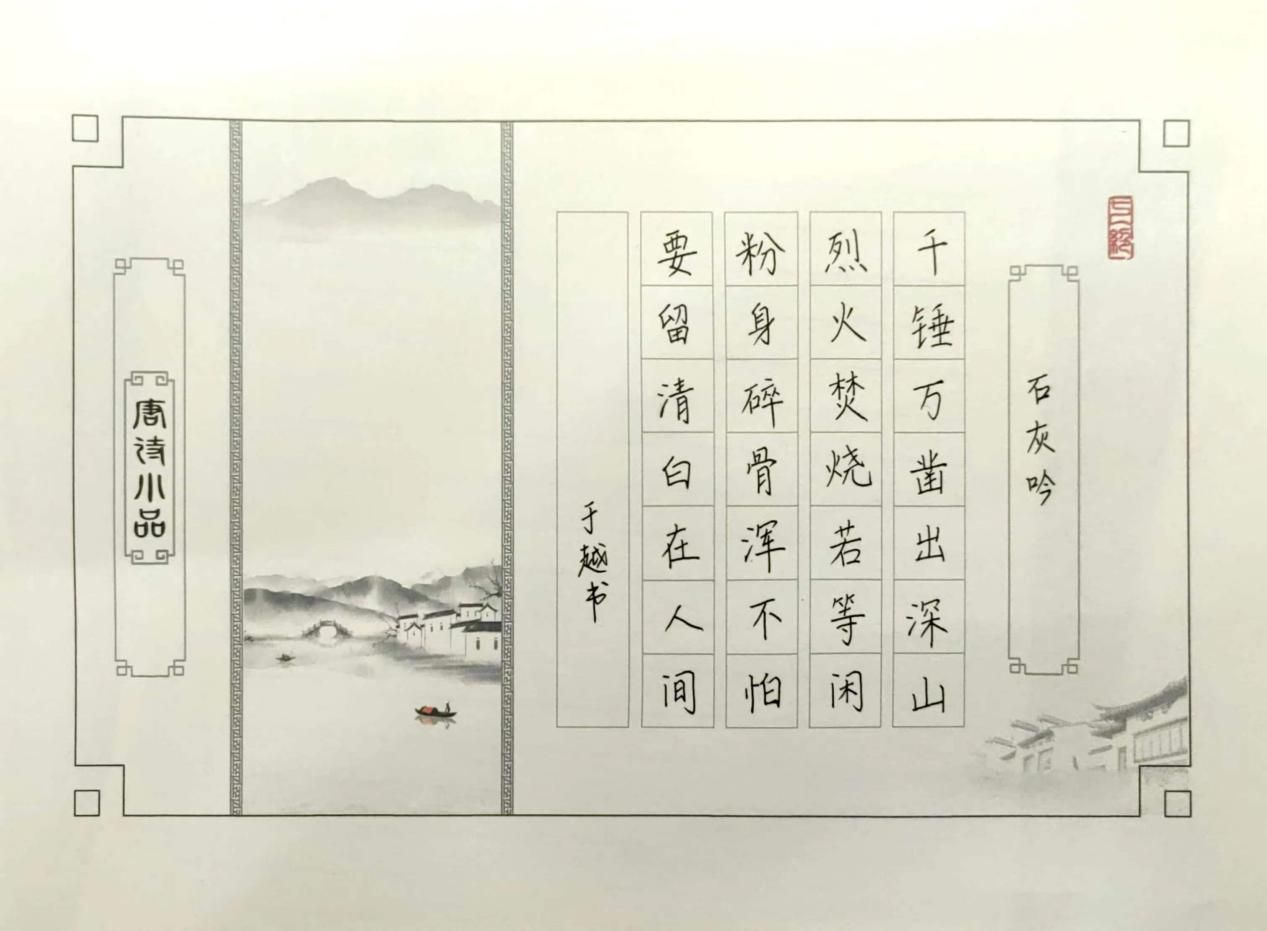 石灰吟
千锤万凿出深山
烈火焚烧若等闲
粉身碎骨浑不怕
要留清白在人间
于越书
唐诗小品